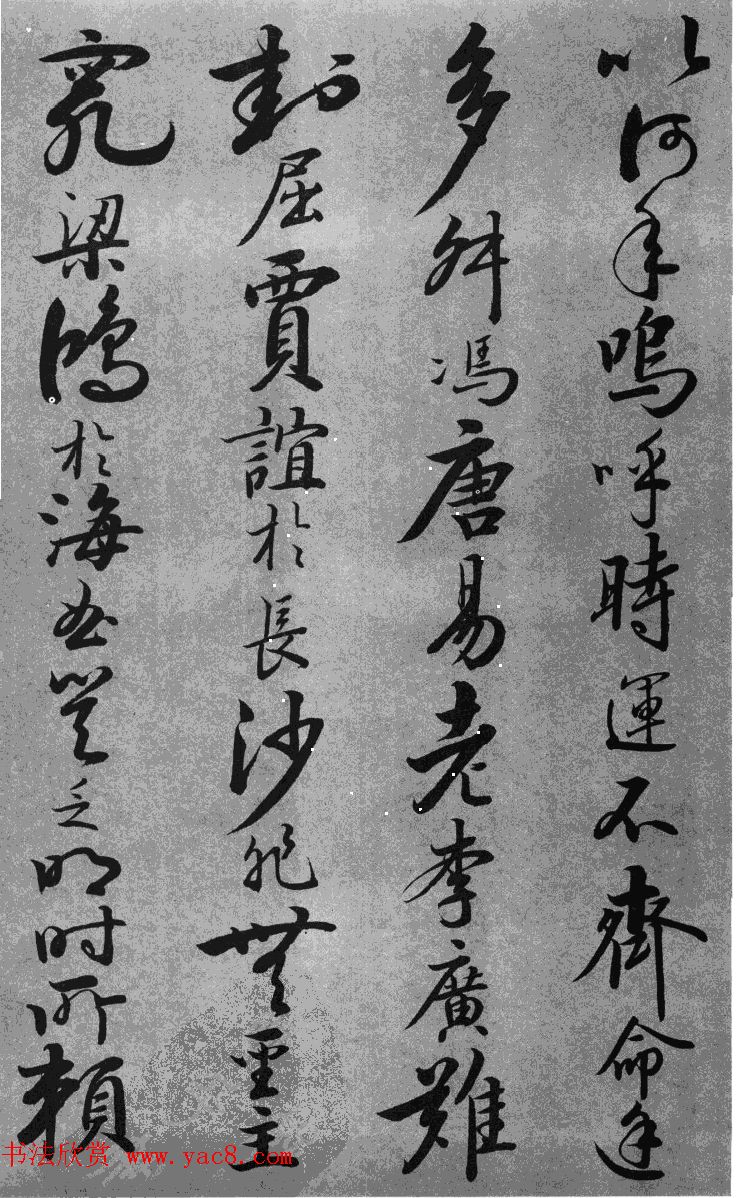 以何年嗚呼時運不齊命途
多舛馮唐易老李廣難
封屈賈誼於長沙非無聖主
竄梁鴻於海曲豈乏明时所賴
书法欣赏 www.yac8.com